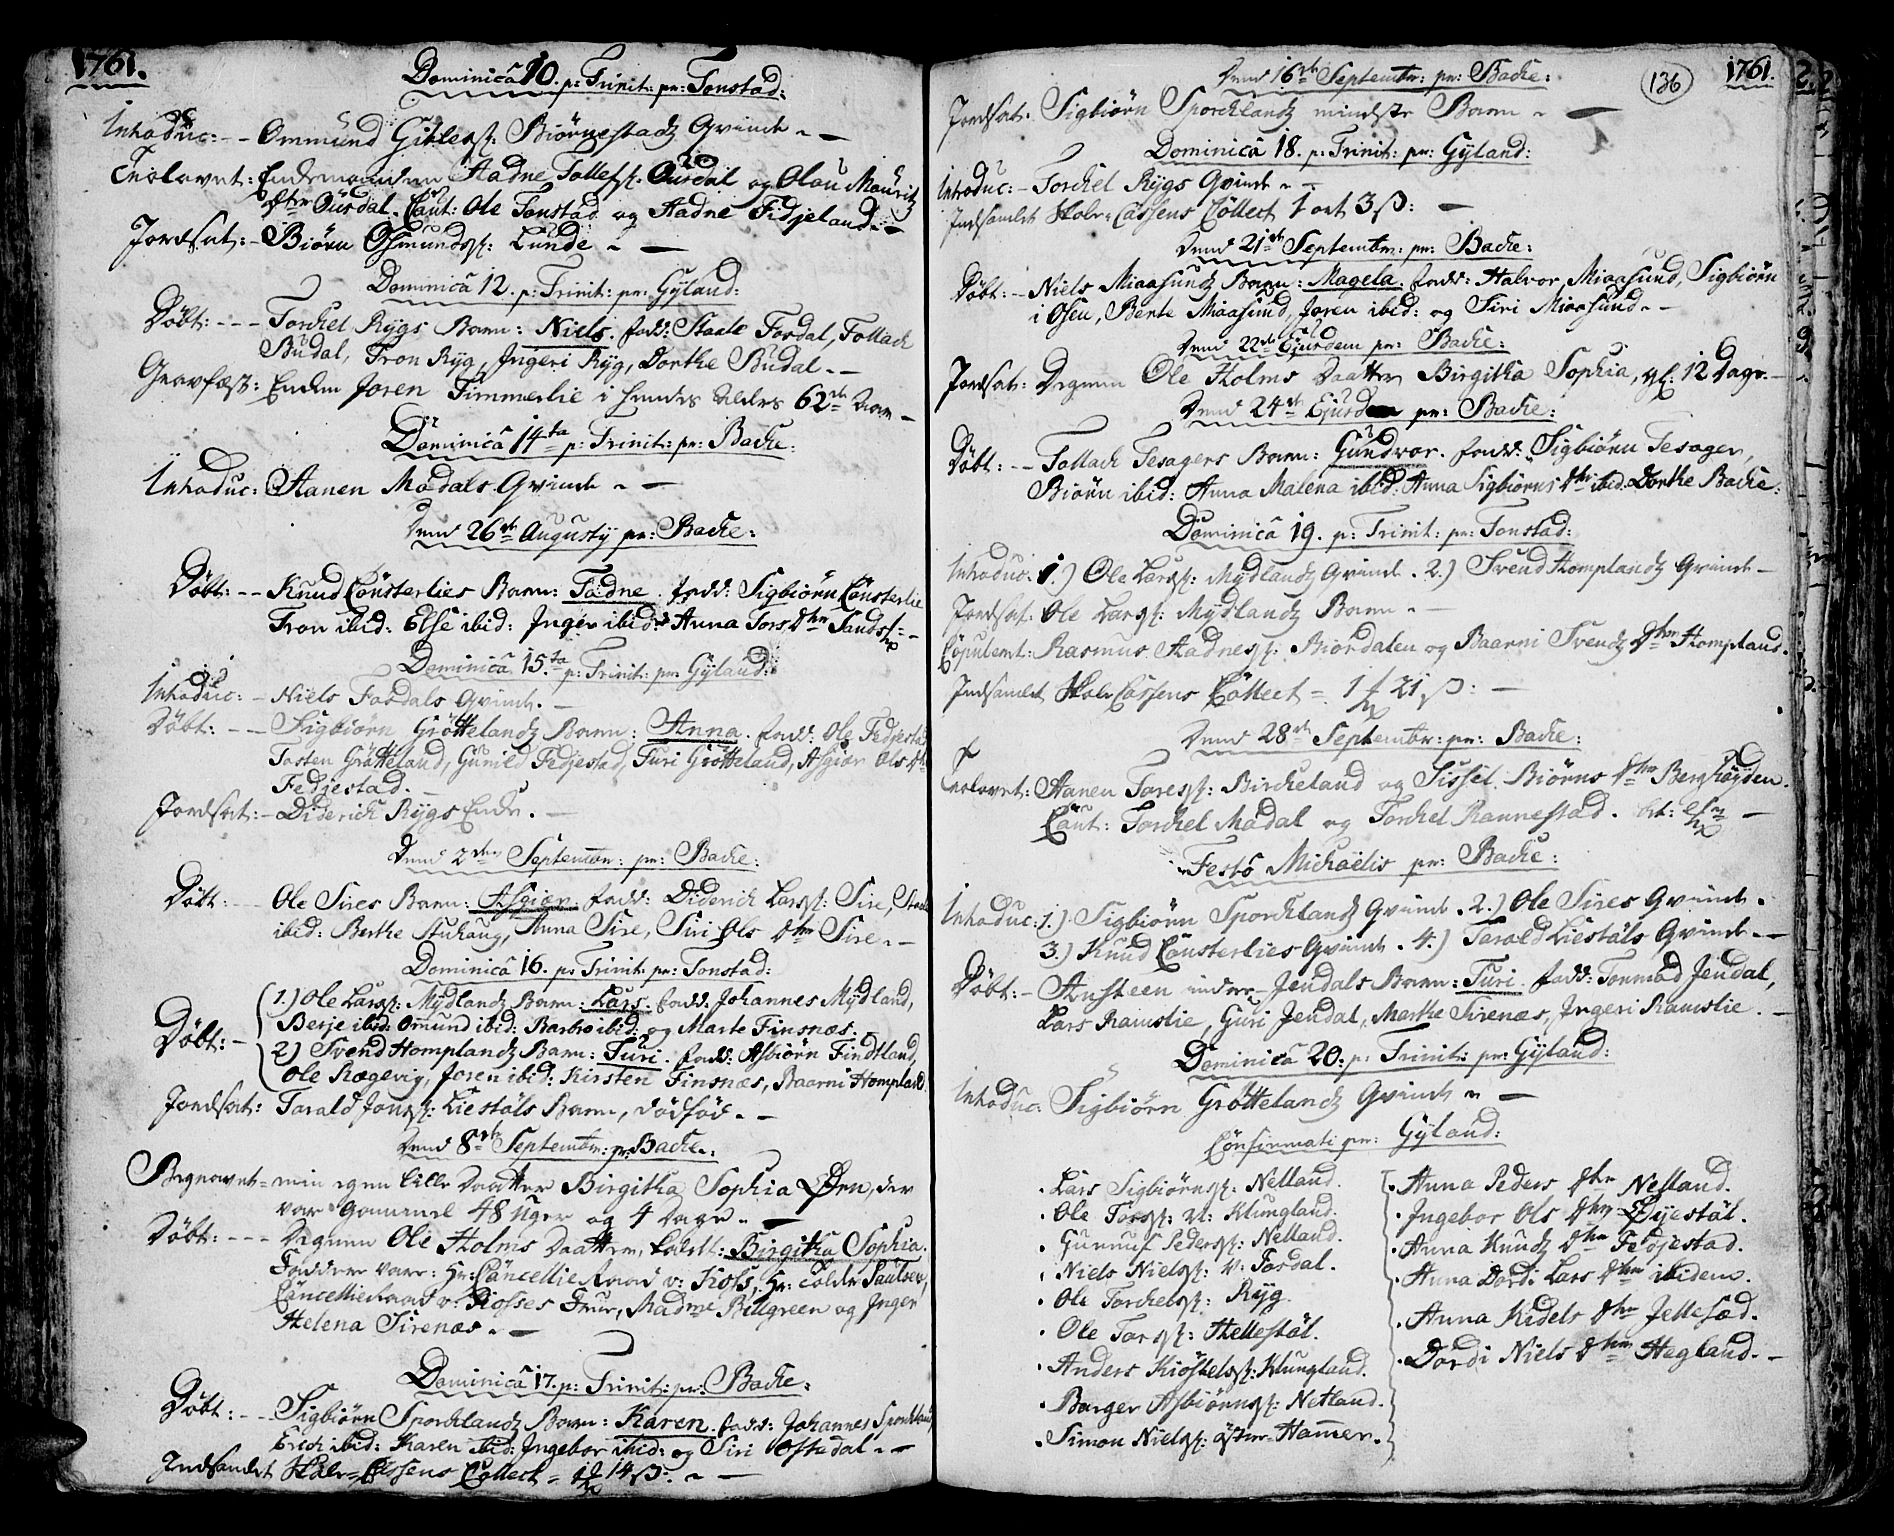 1761.
Dominica 10. p: Trinit: pr: Tonstad:
Introduc: -- Ommund Gitless: Biørnestads Qvinde ~ —
Trolovet: Endemanden Aadne Tollefs: Ousdal og Olau Mauritz
Dtter Ousdal. Caut: Ole Tonstad og Aadne Fidjeland. —
Jordsat: - Biørn Osmunds: Lunde ~ —
Dominica 12. p: Trinit: pr: Gyland:
Døbt: --- Torckel Rygs Barn: Niels. fadd: Staale Fordal, Tollack
Budal, Tron Ryg, Ingeri Ryg, Dorthe Budal. —
Gravfæst: Enken Joren Timmerlie i hendes Alders 62de Aar —
Dominica 14ta p: Trinit: pr: Backe:
Introduc: Aanen Mødals Qvinde ~ —
Dend 26de Augusty pr: Backe:
Døbt: -- Knud Consterlies Barn: Tadne. fadd: Sigbiørn Consterlie
Tron ibid: Else ibid: Inger ibid: Anna Tors Dtter Sands
Dominica 15ta p: Trinit: pr: Gyland:
Introduc: - Niels Fosdals Qvinde. —
Døbt: -- Sigbiørn Grøttelands Barn: Anna. fadd: Ole Fedjestad
Tosten Grøtteland, Gunild Fedjestad, Turi Grøtteland, Asgiør Ols Dtr
Fedjestad. —
Jordsat: - Diderich Rygs Enke. —
Dend 2den Septembr: pr: Backe:
Døbt: -- Ole Sires Barn: Asgiør. fadd: Diderich Lars: Sire,
ibid: Berthe Stuhaug, Anna Sire, Siri Ols Dtter Sire. —
Dominica 16. p: Trinit: pr: Tonstad:
Døbt: - 1.) Ole Lars: Mydlands Barn: Lars. fadd: Johannes Mydland,
Berje ibid: Omund ibid: Barbro ibid: og Marte Finsnæs.
2) Svend Homplands Barn: Turi. fadd: Asbiørn Findtland,
Ole Rægevig, Joren ibid: Kirsten Finsnæs, Baarni Hompland.
Jordsat: Tarald Jons: Liestøls Barn, dødfød. —
Dend 8de Septembr: pr: Backe:
Begravet = min egen lille Daatter Birgitha Sophia Øen, der
var gammel 48 Uger og 4 Dage. —
Døbt: --- Degnen Ole Holms Daatter, kaldt: Birgitha Sophia.
Fadder vare: Hr: Cancellie Raad v: Koss, Hr: Paulsen,
Cancellie Raad v: Kosses Frue, Madme Billgreen og Inger
Helena Sirenæs. —
Dominica 17. p: Trinit: pr: Backe:
Døbt: -- Sigbiørn Sporcklands Barn: Karen. fadd: Johannes Sporckland
Erich ibid: Karen ibid: Ingebor ibid: og Siri Oftedal. —
Indsamlet Skole-Cassens Collect = 14 ß: ~ —
136
1761.
Dend 16de Septembr: pr: Backe:
Jordsat: Sigbiørn Sporcklands mindste Barn ~ —
Dominica 18. p: Trinit: pr: Gyland:
Introduc: - Torckel Rygs Qvinde ~ -
Indsamlet Skole-Cassens Collect 1 ort 3 ß: —
Dend 21de Septembr: pr: Backe:
Døbt: - Niels Miaasunds Barn: Magela. fadd: Halvor Miaasund, Sigbiørn
i Osen, Berte Miaasund, Joren ibid: og Siri Miaasund. -
Dend 22de Ejusdem pr: Backe:
Jordsat: Degnen Ole Holms Daatter Birgitha Sophia, gl: 12 Dage. —
Dend 24de Ejusdem pr: Backe:
Døbt: -- Tollack Tesagers Barn: Gundvor. fadd: Sigbiørn Tesager,
Biørn ibid: Anna Malena ibid: Anna Sigbiørns Dtr ibid: Dorthe Backe:
Dominica 19. p: Trinit: pr: Tonstad:
Introduc: 1.) Ole Lars: Mydlands Qvinde. 2.) Svend Homplands Qvinde —
Jordsat: Ole Lars: Mydlands Barn. —
Copuleret: Rasmus Aadnes: Biørdalen og Baarni Svends Dtter Hompland.
Indsamlet Skole Cassens Collect = 1 21 ß: —
Dend 28de Septembr: pr: Backe:
Trolovet: Aanen Tores: Birckeland og Sissel Biørns Dtter Berghøyden.
Caut: Torckel Mødal og Torckel Rannestad. —
Festo Michaëlis pr: Backe:
Introduc: 1.) Sigbiørn Sporcklands Qvinde. 2.) Ole Sires Qvinde.
3.) Knud Consterlies Qvinde. 4.) Tarald Liestøls Qvinde. —
Døbt: - Austeen indre Jendals Barn: Turi. fadd: Tormod Jendal,
Lars Ramslie, Guri Jendal, Marthe Sirenæs, Ingeri Ramslie. —
Dominica 20. p: Trinit: pr: Gyland:
Introduc: Sigbiørn Grøttelands Qvinde ~ —
Confirmati pr: Gyland:
Lars Sigbiørns: Netland.
Ole Tors: v: Klungland.
Gunnuf Peders: Netland.
Niels Niels: v: Fosdal.
Ole Torckels: Ryg.
Ole Tors: Hellestøl.
Anders Kiøstels: Klungland.
Børger Asbiørns: Netland.
Simon Niels: øvre Hammer.
Anna Peders Dtr Netland.
Ingebor Ols Dtr Øyestøl.
Anna Knuds Dtr Fedjestad.
Anna Dordi Lars Dtr ibidem.
Anna Kidels Dtr Jellesæd.
Dordi Niels Dtr Hægland. -